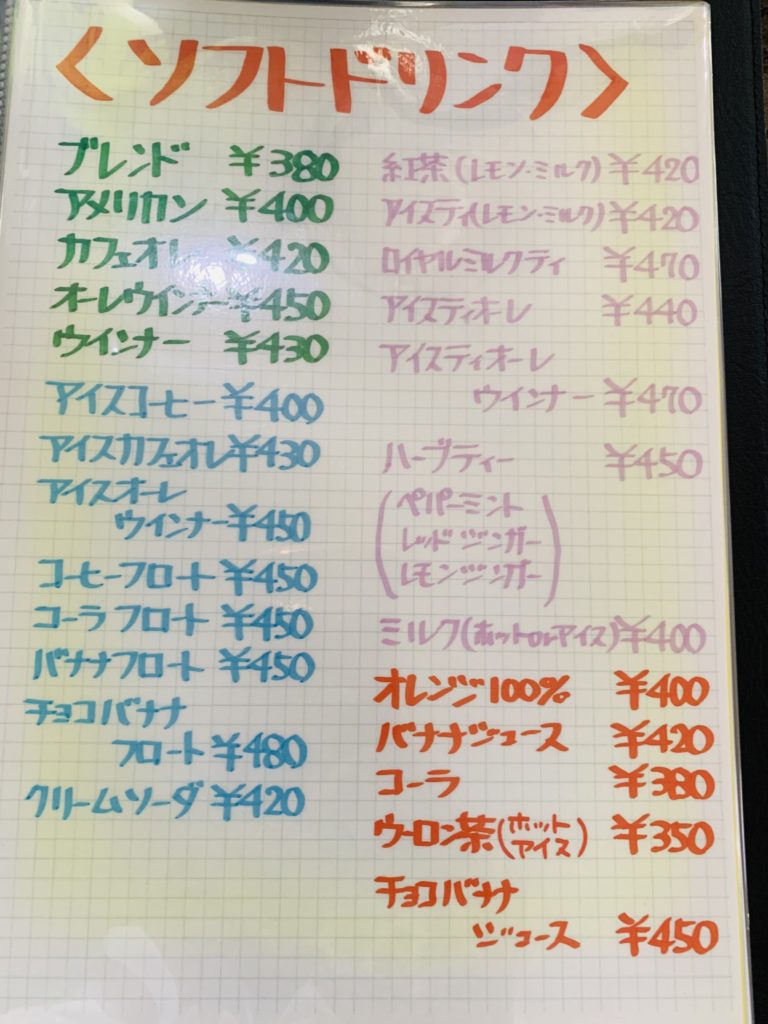 〈ソフトドリンク〉
ブレンド ¥380
アメリカン ¥400
カフェオレ ¥420
オーレウインナー ¥450
ウインナー ¥430
アイスコーヒー ¥400
アイスカフェオレ ¥430
アイスオーレ
ウインナー ¥450
コーヒーフロート ¥450
コーラフロート ¥450
バナナフロート ¥450
チョコバナナ
フロート ¥480
クリームソーダ ¥420
紅茶(レモン・ミルク) ¥420
アイスティ(レモン・ミルク) ¥420
ロイヤルミルクティ ¥470
アイスティオーレ ¥440
アイスティオーレ
ウインナー ¥470
ハーブティー ¥450
(ペパーミント
レッドジンガー
レモンジンガー)
ミルク(ホットorアイス) ¥400
オレンジ100% ¥400
バナナジュース ¥420
コーラ ¥380
ウーロン茶(ホット アイス) ¥350
チョコバナナ
ジュース ¥450